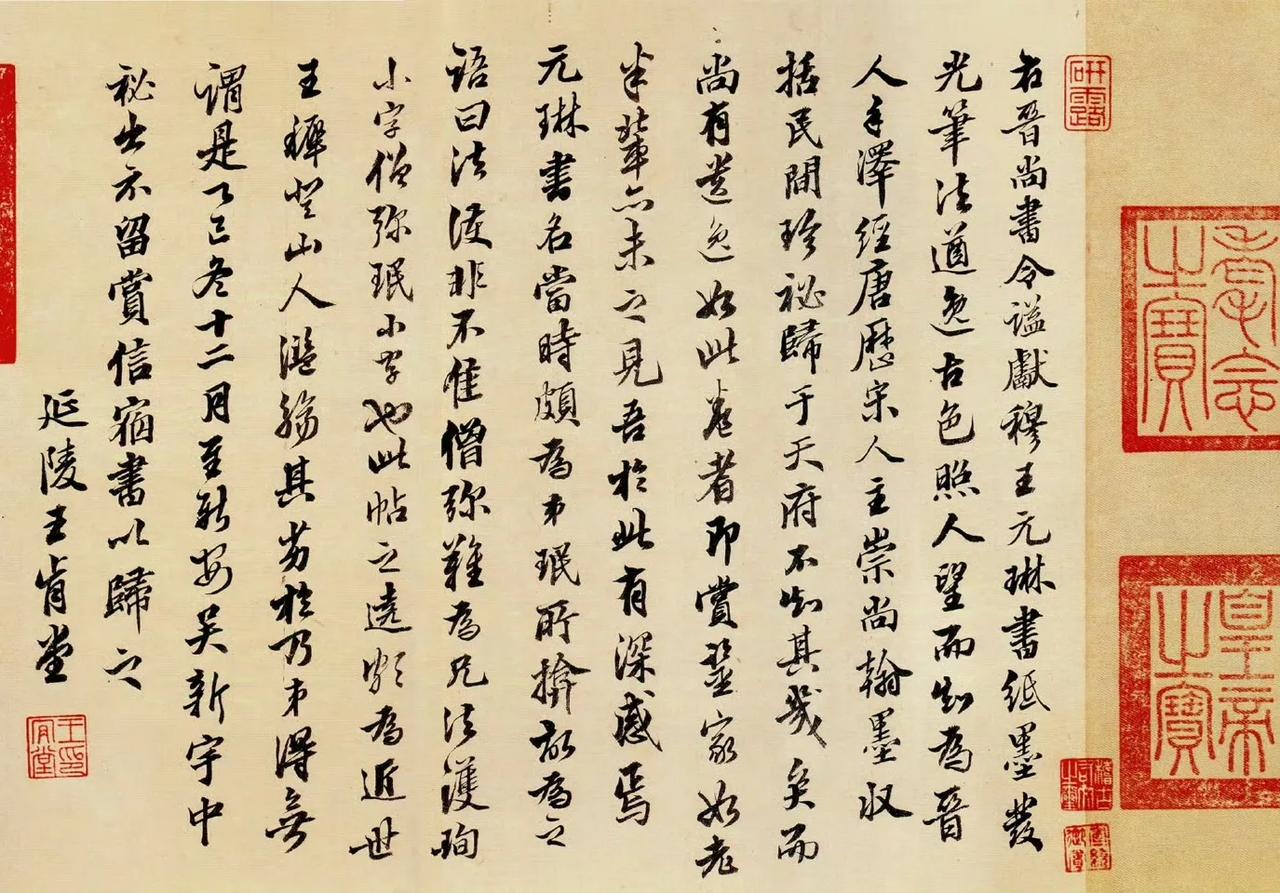 研露
耄念之寶
皇帝之寶
稽古右文之璽
右晉尚書令謚獻穆王元琳書紙墨發
光筆法遒逸古色照人望而知為晉
人手澤經唐歷宋人主崇尚翰墨收
括民間珍祕歸于天府不知其幾矣而
尚有遺逸如此卷者即賞鑒家如老
米輩亦未之見吾於此有深感焉
元琳書名當時頗為弟珉所揜故為之
語曰法護非不佳僧彌難為兄法護珣
小字僧彌珉小字也此帖之為近世
王穉登山人濫觴其劣於乃弟得無
謂是乙巳冬十二月至新安吳新宇中
祕出示留賞信宿書以歸之
延陵王肯堂
王肯堂印